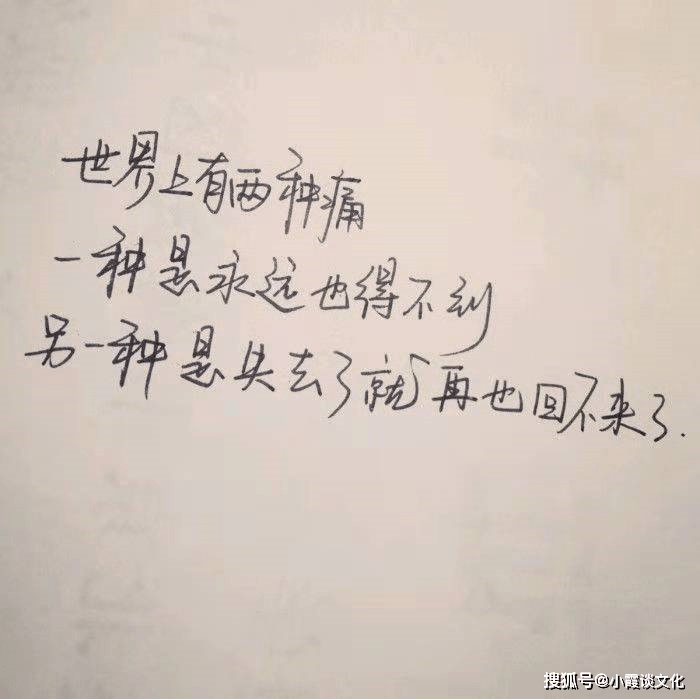 世界上有两种痛
一种是永远也得不到
另一种是失去了就再也回不来了.
搜狐号@小霞谈文化